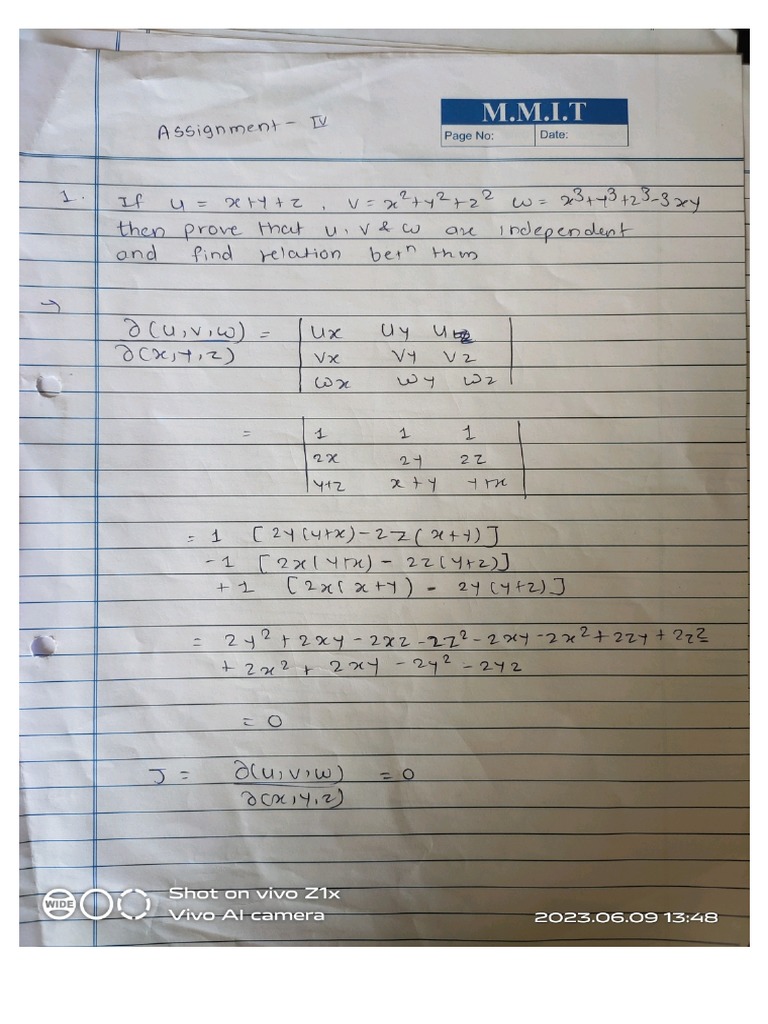 M.M.I.T
Page No: Date:
Assignment - IV
1. If u = x+y+z , v = x²+y²+z² w = x³+y³+z³-3xy
then prove that u, v & w are independent
and find relation betn thm
→
∂(u,v,w) = | ux uy uz |
∂(x,y,z) | vx vy vz |
| wx wy wz |
= | 1 1 1 |
| 2x 2y 2z |
| y+z x+y y+x |
= 1 [2y(y+x)-2z(x+y)]
-1 [2x(y+x) - 2z(y+z)]
+1 [2x(x+y) - 2y(y+z)]
= 2y²+2xy-2xz-2z²-2xy-2x²+2zy+2z²
+2x²+2xy-2y²-2yz
= 0
J = ∂(u,v,w) = 0
∂(x,y,z)
WIDE
Shot on vivo Z1x
Vivo AI camera
2023.06.09 13:48